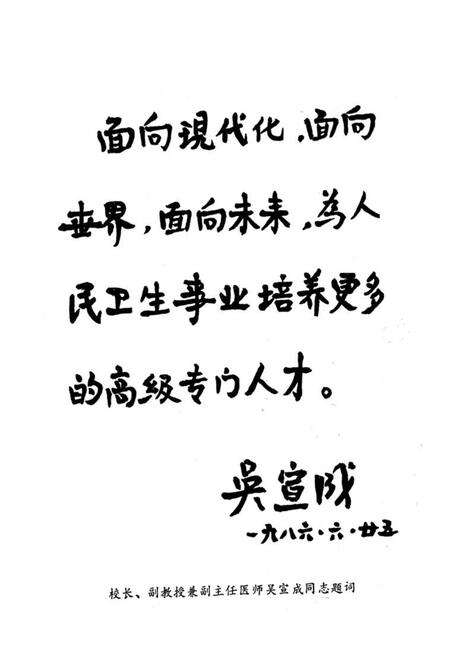 面向現代化，面向
世界，面向未来，為人
民卫生事业培养更多
的高级专门人才。
吴宣成
一九八六·六·廿五
校长、副教授兼副主任医师吴宣成同志题词